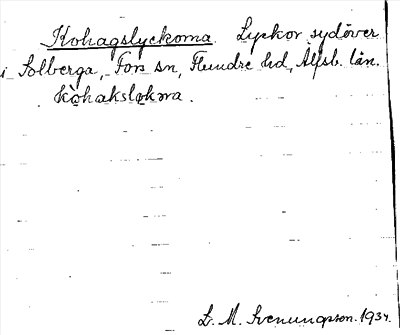 Kohagslyckorna Lyckor sydöver
i Solberga, Fors sn, Flundre hd, Älfsb. län.
kòhaksløkωra.
D. M. Svenungsson. 1934.